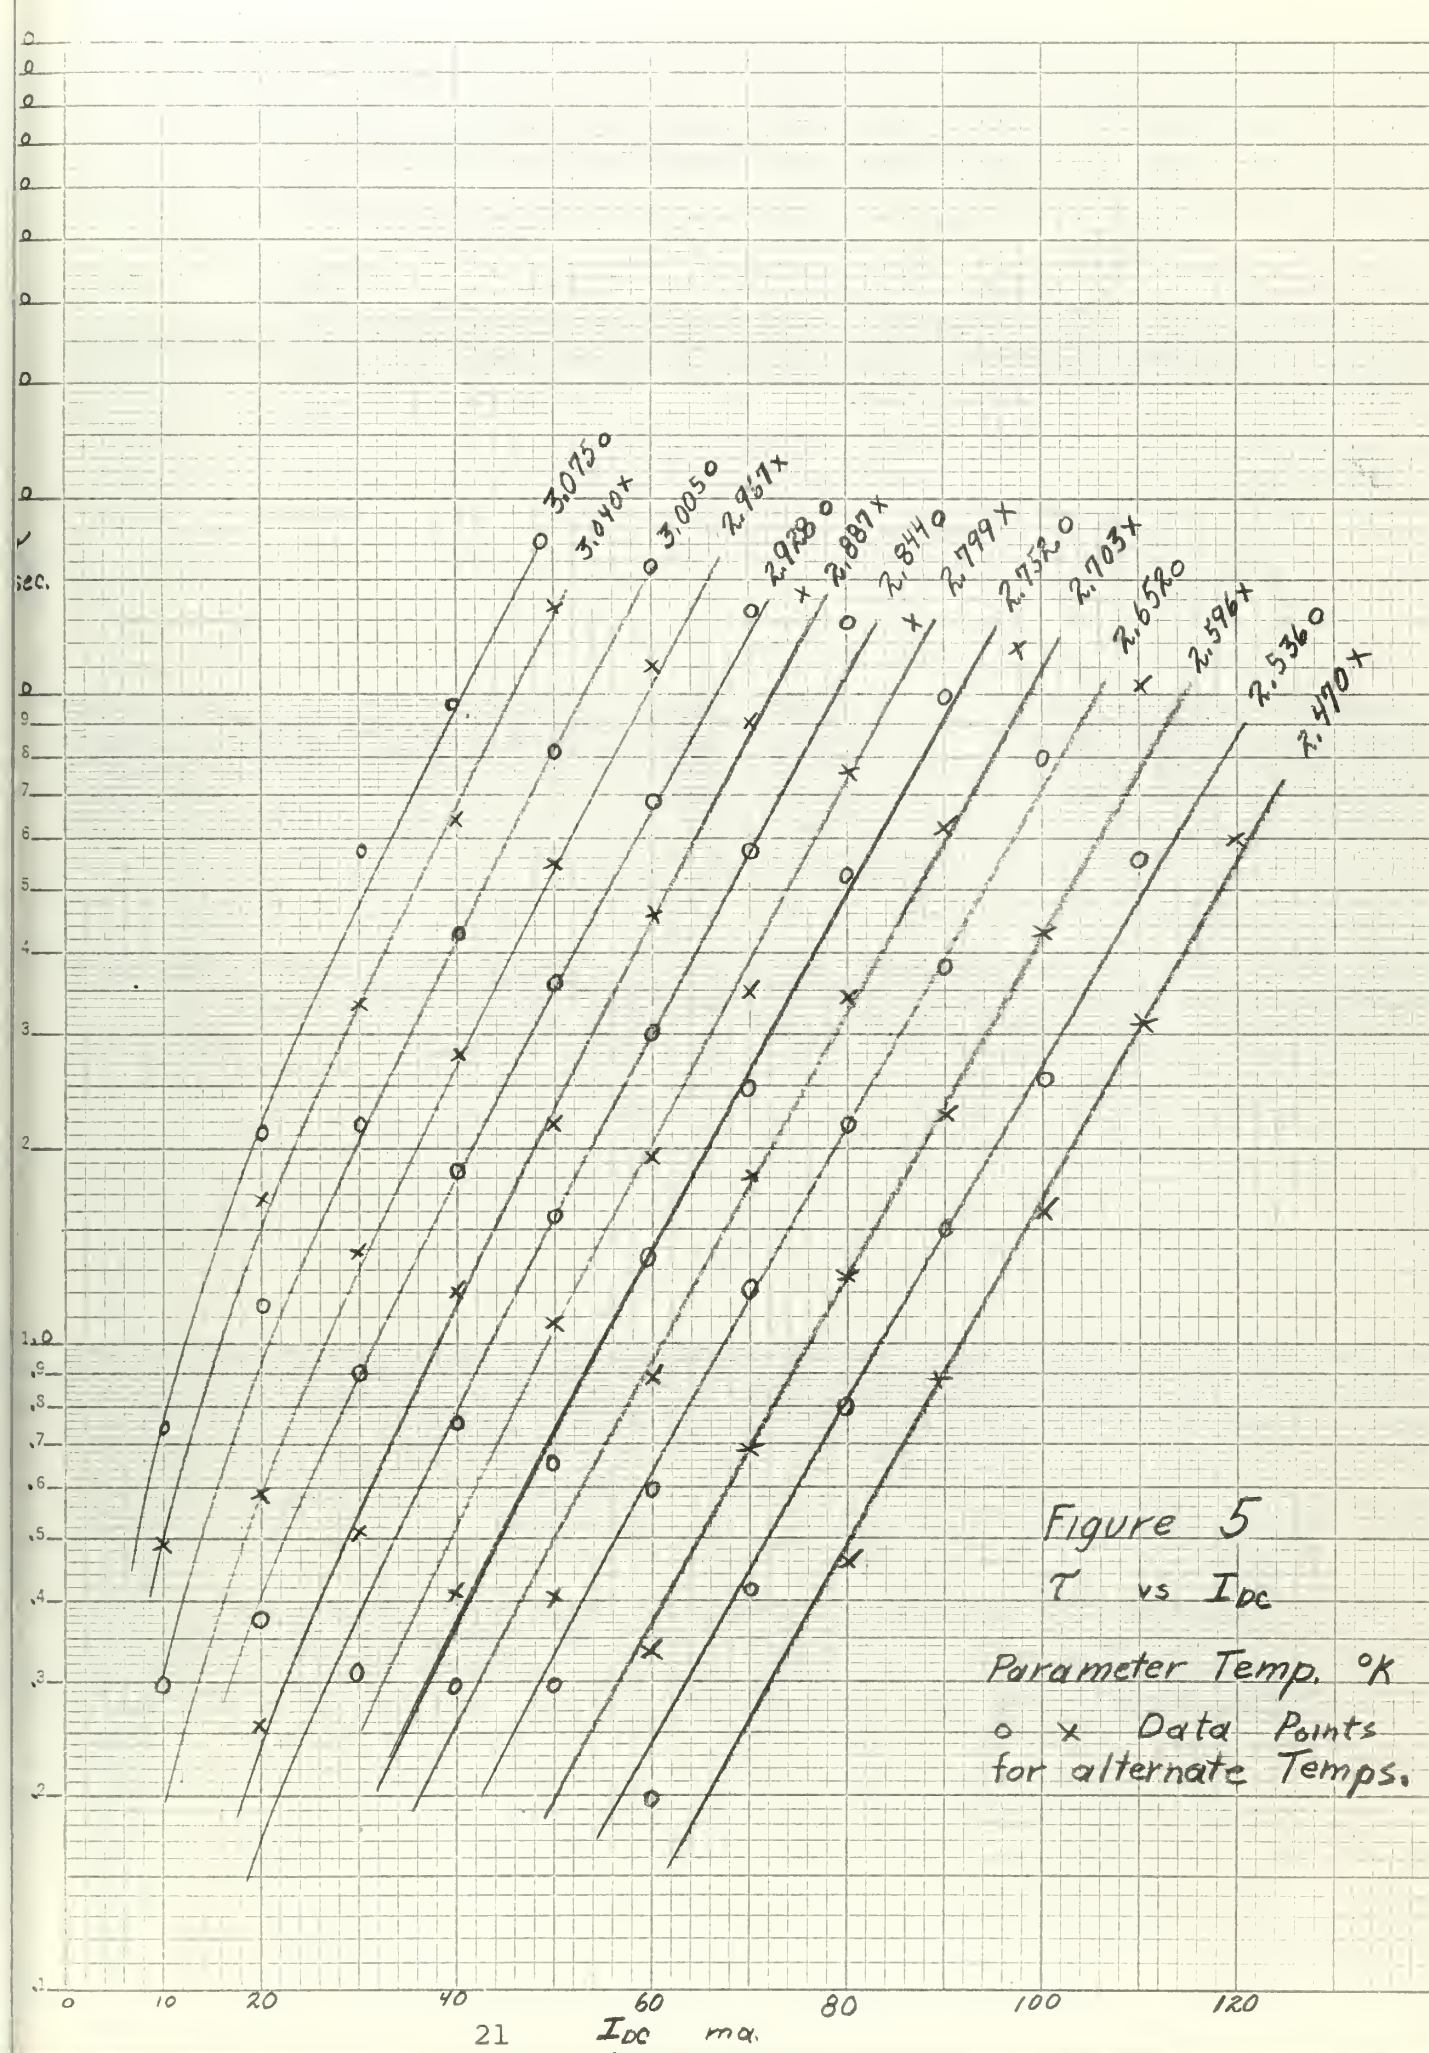 0
0
0
0
0
0
0
0
0
sec.
0
9
8
7
6
5
4
3
2
1.0
.9
.8
.7
.6
.5
.4
.3
.2
.1
3.075 o
3.040 x
3.005 o
2.967 x
2.928 o
2.887 x
2.844 o
2.799 x
2.752 o
2.703 x
2.652 o
2.596 x
2.536 o
2.470 x
Figure 5
τ vs IDC
Parameter Temp. °K
o x Data Points
for alternate Temps.
0 10 20 40 60 80 100 120
21 IDC ma.